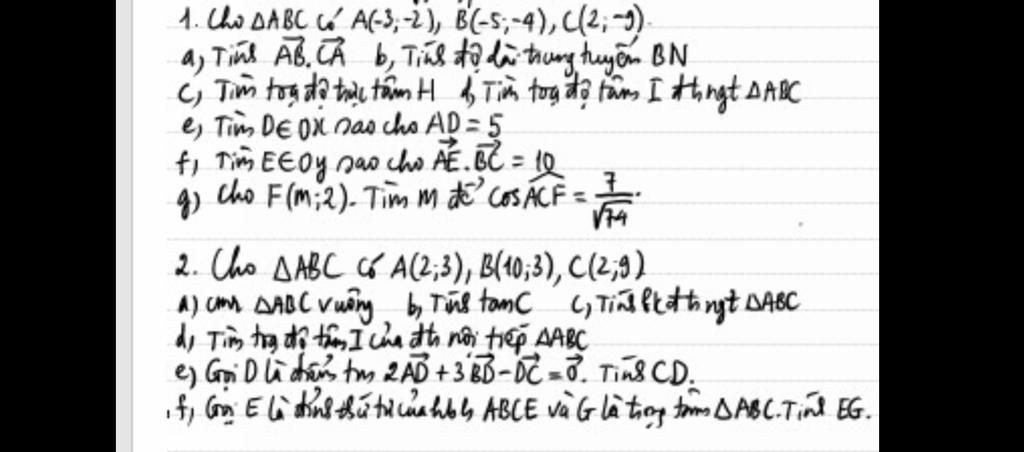 1. Cho ΔABC có A(-3;-2), B(-5;-4), C(2;-9).
a) Tính AB⃗.CA⃗ b, Tính độ dài trung tuyến BN
c, Tìm toạ độ trực tâm H d, Tìm toạ độ tâm I đth ngt ΔABC
e, Tìm D∈OX sao cho AD = 5
f, Tìm E∈Oy sao cho AE⃗.BC⃗ = 10
g) Cho F(m;2). Tìm m để cos ACF̂ = 7/√74.
2. Cho ΔABC có A(2;3), B(10;3), C(2;9)
a) cmr ΔABC vuông b, Tính tanC c, Tính đth ngt ΔABC
d, Tìm toạ độ tâm I của đth nội tiếp ΔABC
e) Gọi D là điểm tm 2AD⃗ + 3BD⃗ - DC⃗ = 0⃗. Tính CD.
f, Gọi E là đỉnh thứ tư của hbh ABCE và G là trọng tâm ΔABC. Tính EG.